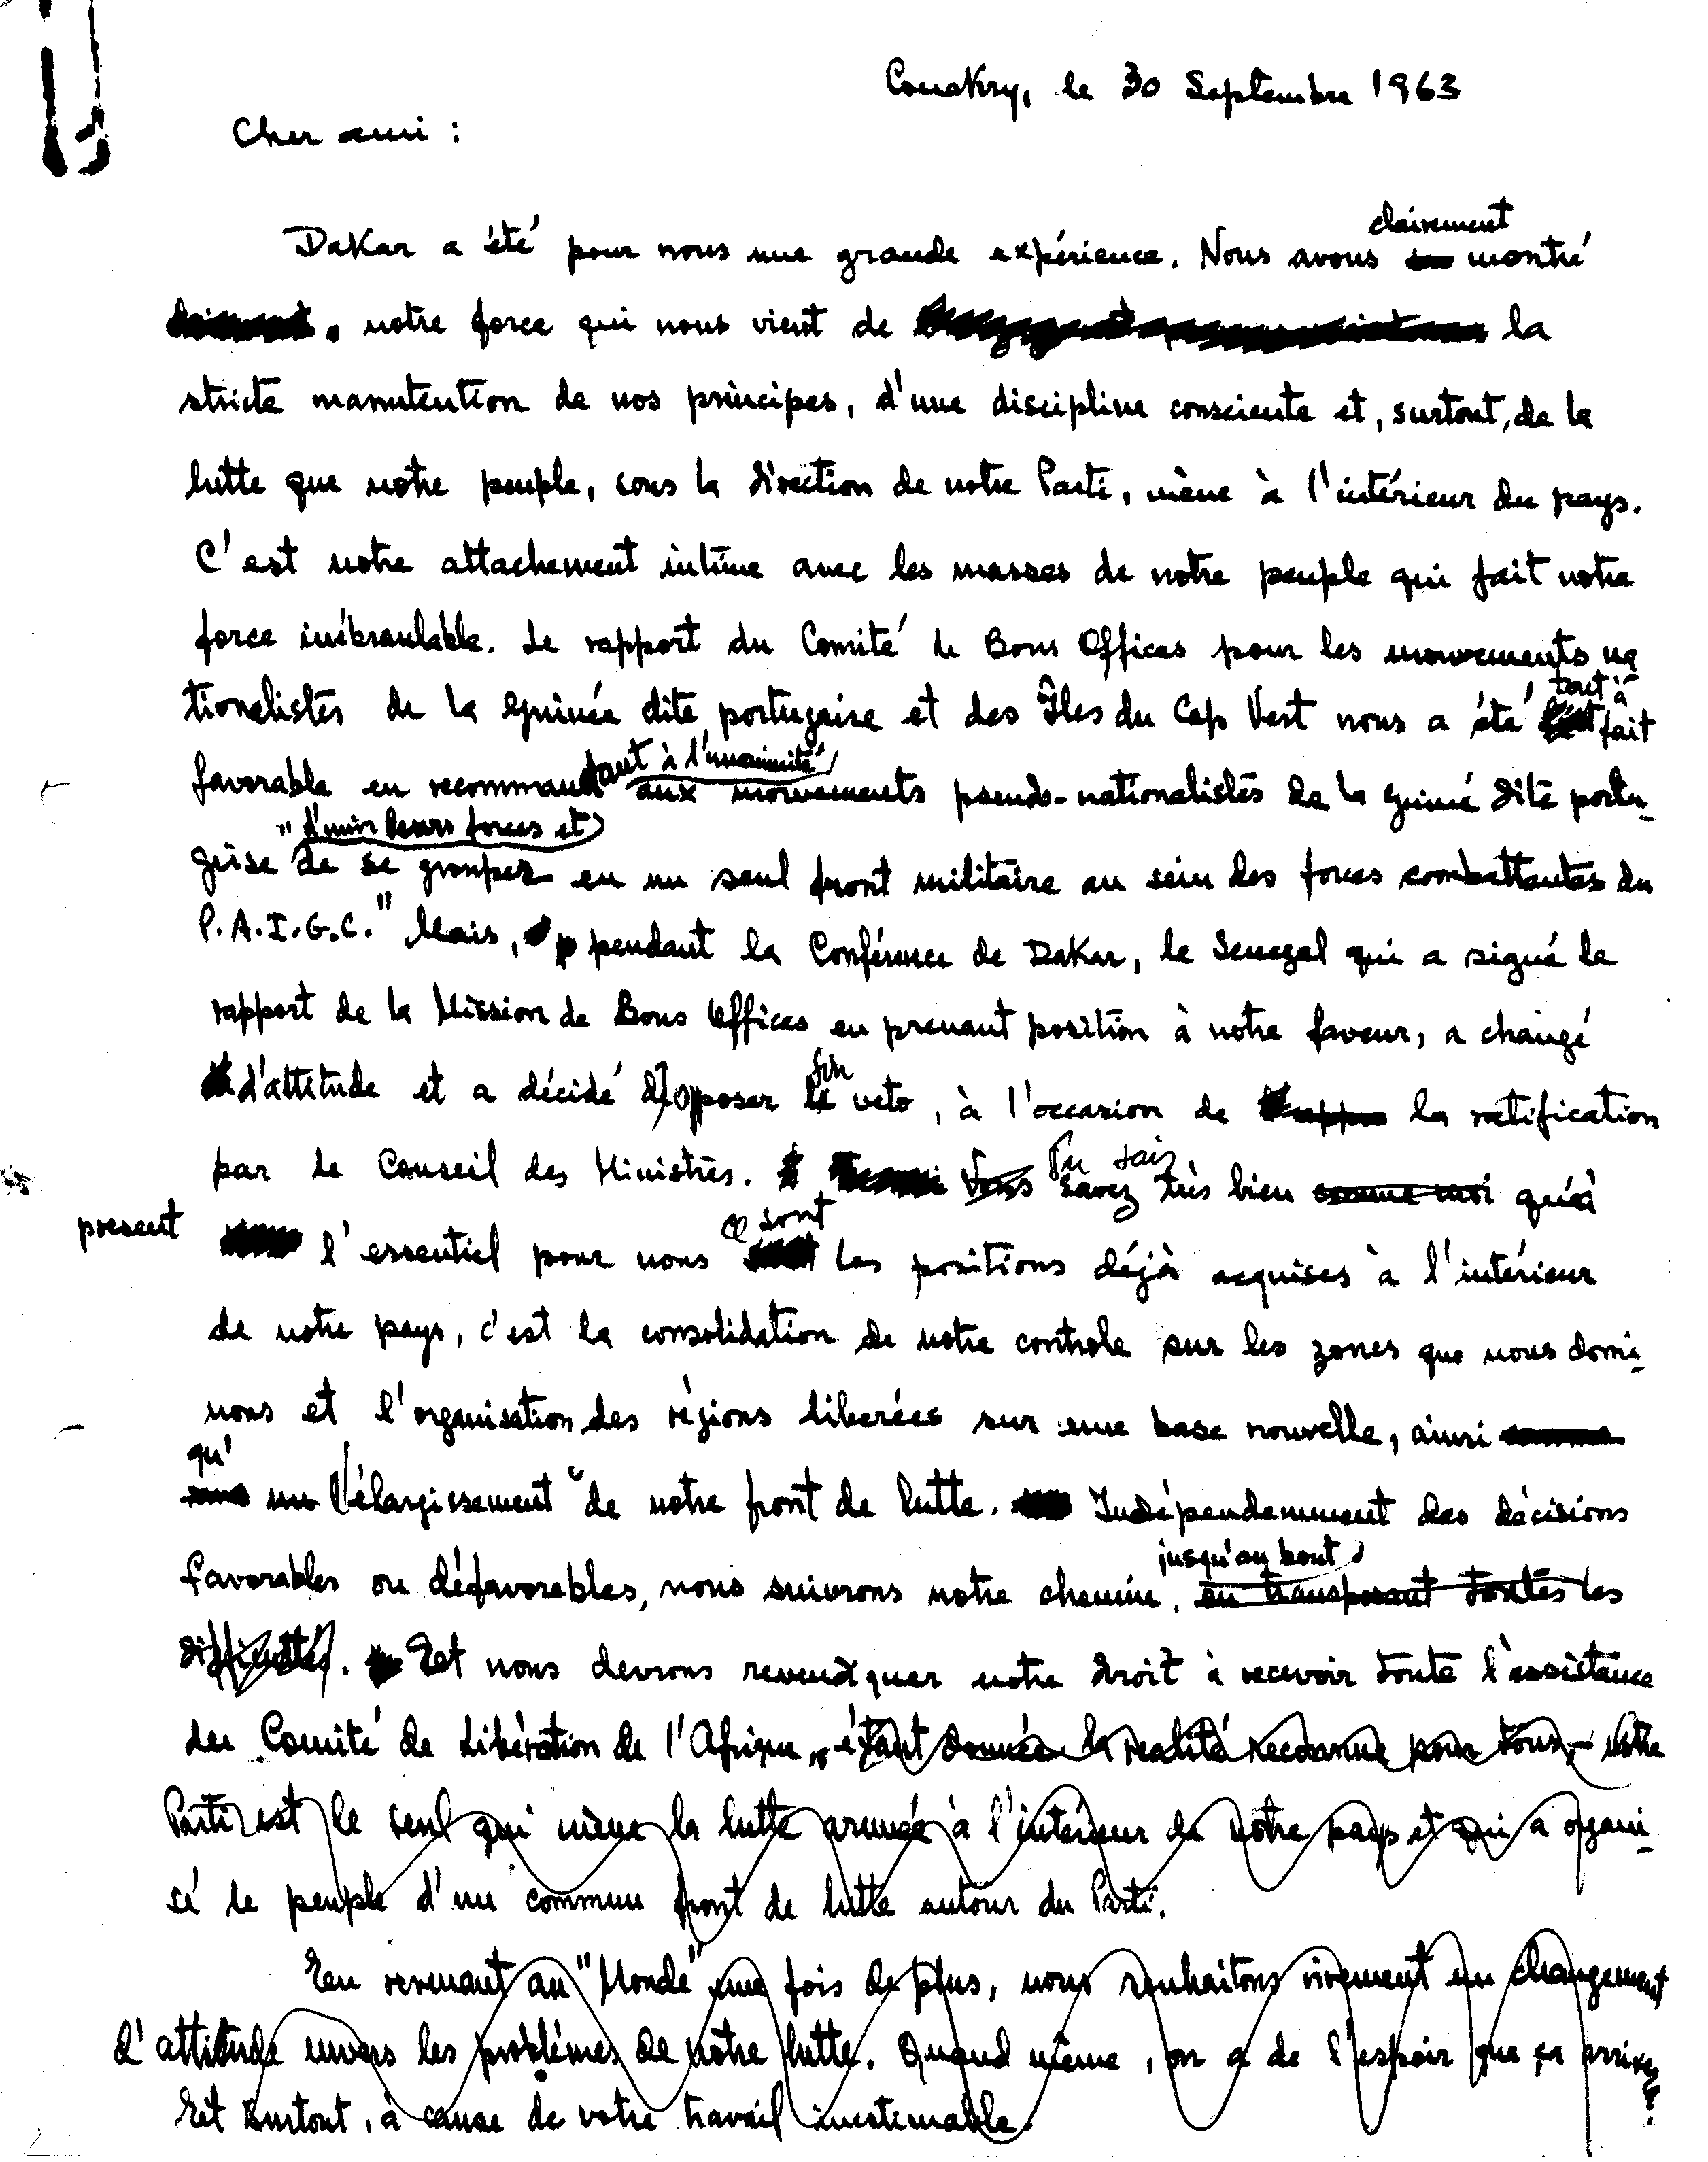 Conakry, le 30 Septembre 1963
Cher ami :
clairement
Dakar a été pour nous une grande expérience. Nous avons montré
notre force qui nous vient de la
stricte manutention de nos principes, d'une discipline consciente et, surtout, de la
lutte que notre peuple, sous la direction de notre Parti, mène à l'intérieur du pays.
C'est notre attachement intime avec les masses de notre peuple qui fait notre
force inébranlable. Le rapport du Comité de Bons Offices pour les mouvements na
tionalistes de la Guinée dite portugaise et des Îles du Cap Vert nous a été tout à fait
favorable en recommandant à l'unanimité aux mouvements pseudo-nationalistes de la Guiné dite portu-
"d'unir leurs forces et
gaise de se grouper en un seul front militaire au sein des forces combattantes du
P.A.I.G.C." Mais, pendant la Conférence de Dakar, le Senegal qui a signé le
rapport de la Mission de Bons Offices en prenant position à notre faveur, a changé
d'attitude et a décidé d'opposer son veto, à l'occasion de la ratification
par le Conseil des Ministres. Vous Tu sais savez très bien comme moi qu'à
present l'essentiel pour nous ce sont les positions déjà acquises à l'intérieur
de notre pays, c'est la consolidation de notre controle sur les zones que nous domi-
nons et l'organisation des régions liberées sur une base nouvelle, ainsi
qu'
un l'élargissement de notre front de lutte. Indépendemment des décisions
jusqu'au bout
favorables ou défavorables, nous suivrons notre chemin, en transposant toutes les
difficultés. Et nous devrons revendiquer notre droit à recevoir toute l'assistance
du Comité de Libération de l'Afrique, étant donnée la realité reconnue pour tous, - Notre
Parti est le seul qui mène la lutte armée à l'intérieur de notre pays et qui a organi-
sé le peuple d'un commun front de lutte autour du Parti.
En revenant au "Monde" une fois de plus, nous souhaitons vivement un changement
d'attitude envers les problèmes de notre lutte. Quand même, on a de l'espoir que ça arrivera.
Et surtout, à cause de votre travail inestimable.